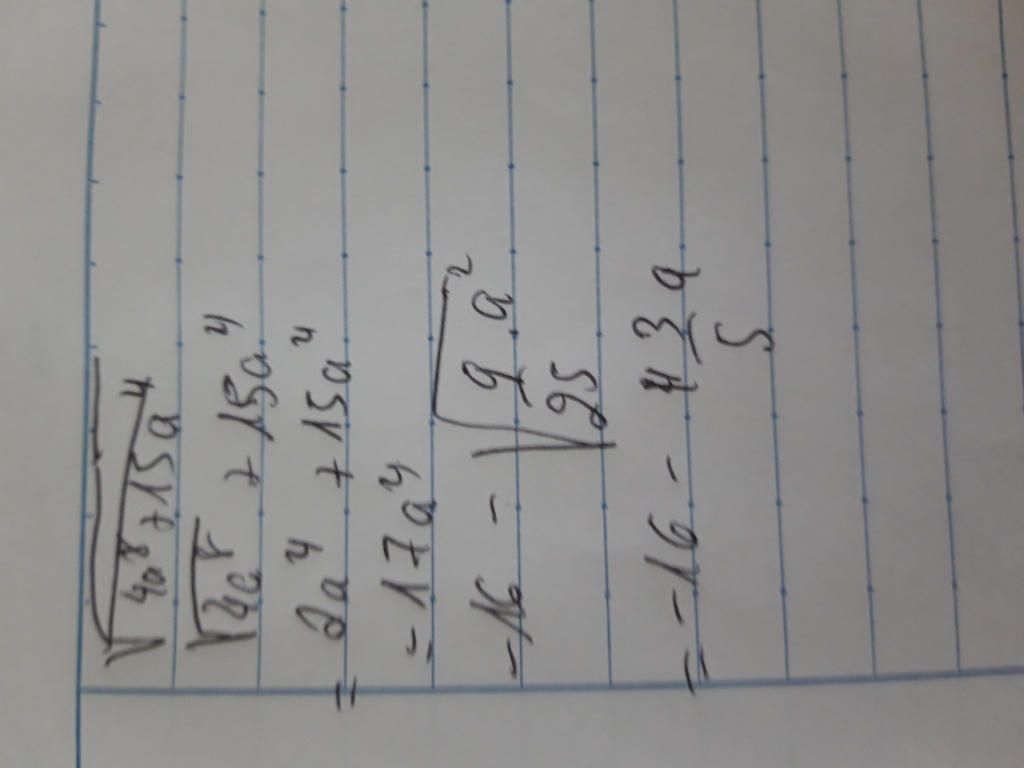 √4a⁸+15a⁴
√4a⁸ + 15a⁴
= 2a⁴ + 15a⁴
= 17a⁴
-16 - √9/25 a²
= -16 - 3/5 a